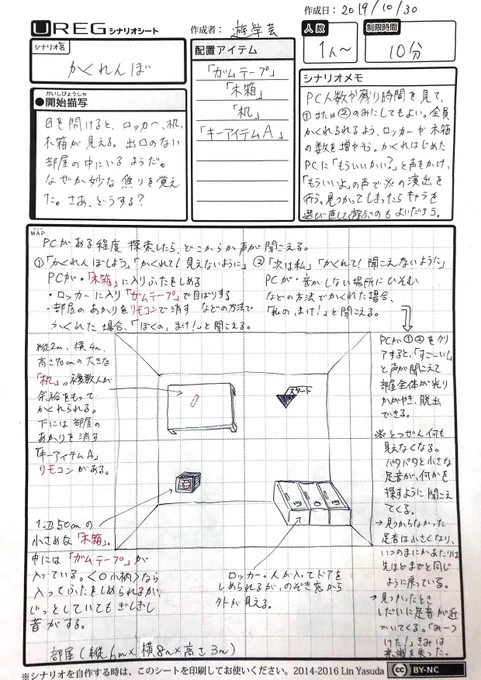 作成日：2019/10/30
UREG シナリオシート
作成者：遊学芸
人数
1人～
制限時間
10分
シナリオ名
かくれんぼ
配置アイテム
「ガムテープ」
「木箱」
「机」
「キーアイテムA」
かいしびょうしゃ
●開始描写
目を開けると、ロッカー、机、
木箱が見える。出口のない
部屋の中にいるようだ。
なぜか妙な焦りを覚え
た。さあ、どうする？
シナリオメモ
PC人数や残り時間を見て、
①または②のみにしてもよい。全員
かくれられるよう、ロッカーや木箱
の数を増やそう。かくれはじめた
PCに「もういいかい？」と声をかけ、
「もういいよ」の声で※の演出を
行う。見つかってしまったらキャラを
選び直して遊ぶのもよいだろう。
MAP
PCがある程度探索したら、どこからか声が聞こえる。
①「かくれんぼしよう」「かくれて！見えないように」
PCが・「木箱」に入りふたをしめる
・ロッカーに入り「ガムテープ」で目ばりする
・部屋のあかりをリモコンで消す などの方法で
かくれた場合、「ぼくの、まけ！」と聞こえる。
②「次は私」「かくれて！聞こえないように」
PCが・音がしない場所にひそむ
などの方法でかくれた場合、
「私の、まけ！」と聞こえる。
縦2m、横4m、
高さ70cmの大きな
「机」。複数人が
余裕をもって
かくれられる。
下には部屋の
あかりを消す
「キーアイテムA」
リモコンがある。
スタート
PCが①②をクリ
アすると、「すごーい！」
と声が聞こえて
部屋全体が光り
かがやき、脱出
できる。
※とつぜん何も
見えなくなる。
パタパタと小さな
足音が、何かを
探すように聞こえ
てくる。
→見つからなかった
足音は小さくなり、
いつのまにかあたりは
先ほどまでと同じ
ように戻っている。
→見つかったとき
しだいに足音が近
づいてくる。「みーつ
けた！」きみは
意識を失った。
1辺50cmの
小さめな「木箱」。
中には「ガムテープ」が
入っている。＜○小柄＞なら
入ってふたをしめられるが、
じっとしていてもぎしぎし
音がする。
ロッカー。人が入ってドアを
しめられるが、のぞき窓から
外が見える。
部屋（縦6m×横8m×高さ3m）
※シナリオを自作する時は、このシートを印刷してお使いください。2014-2016 Lin Yasuda
CC BY-NC